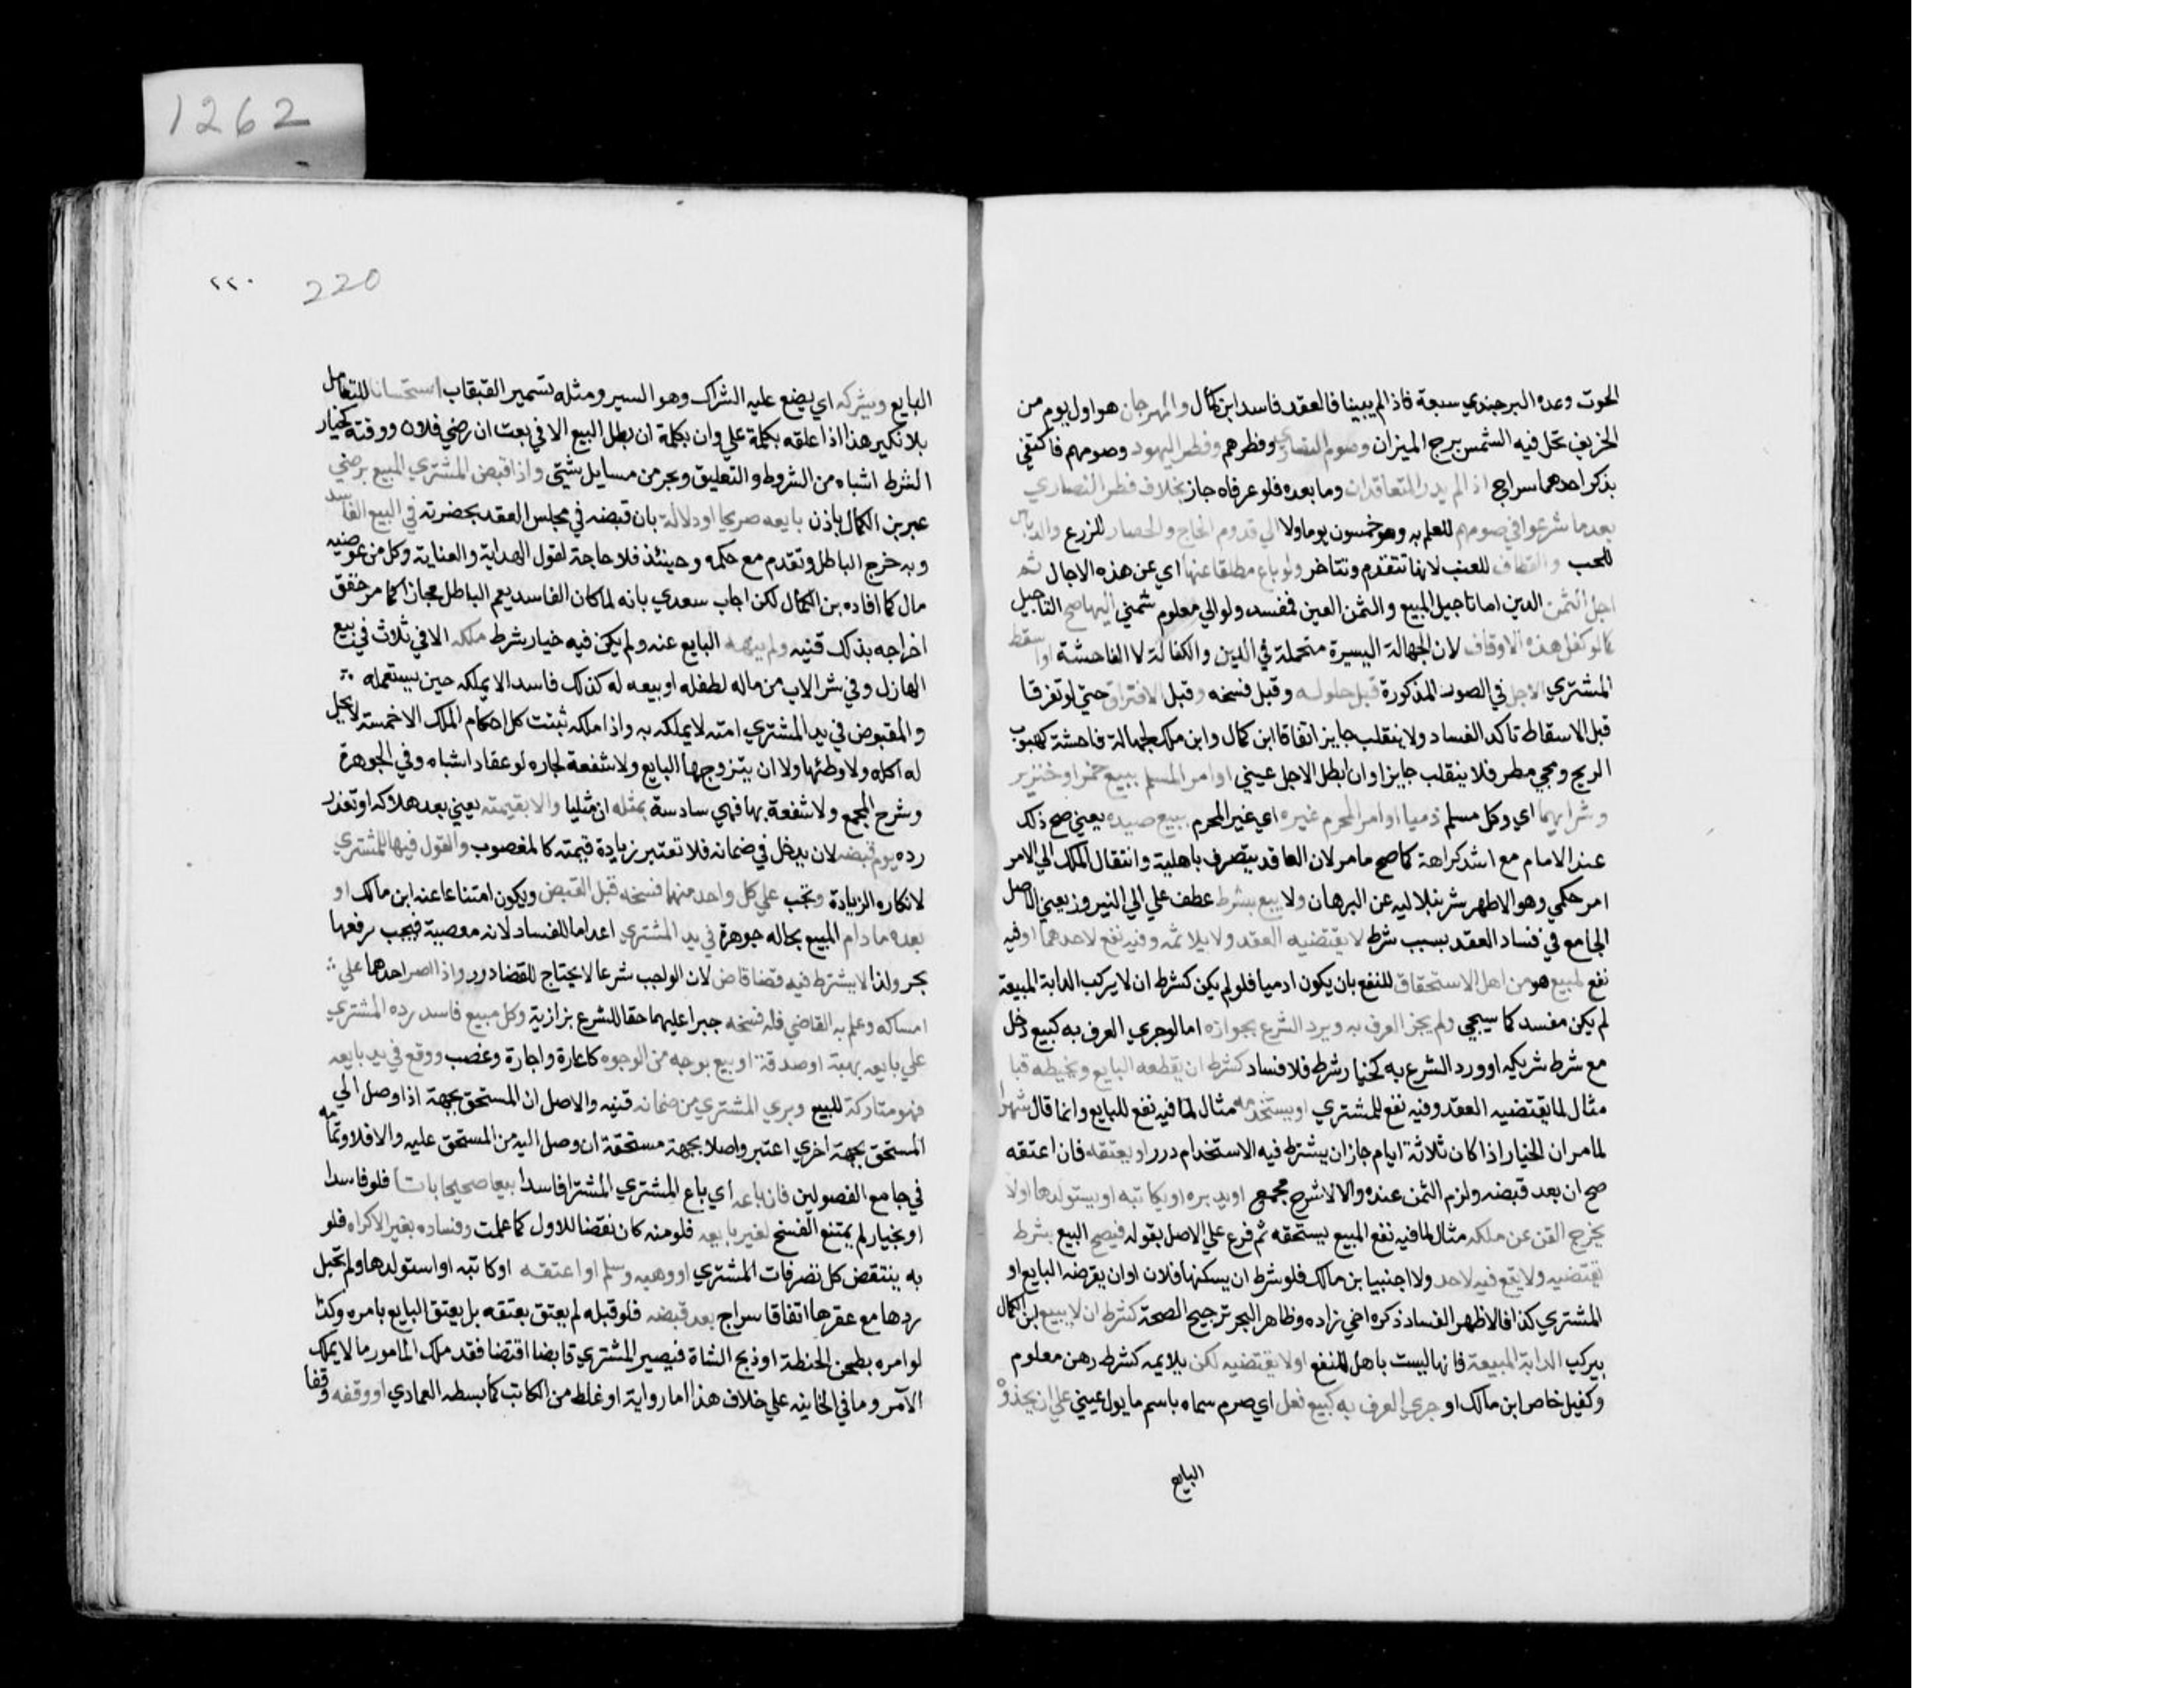 الحوت وعده البرجندي سبعة فاذا لم يبينا فالعقد فاسد ابن كمال والمهرجان هو اول يوم من
الخريف تحل فيه الشمس برج الميزان وصوم النصاري وفطرهم وفطر اليهود وصومهم فاكتفي
بذكر احدهما سراج اذا لم يدر المتعاقدان وما بعده فلو عرفاه جاز بخلاف فطر النصاري
بعدما شرعوا في صومهم للعلم به وهو خمسون يوما ولا الي قدوم الحاج والحصاد للزرع والدياس
للحب والقطاف للعنب لانها تتقدم وتتاخر ولو باع مطلقا عنها اي عن هذه الاجال ثم
اجل الثمن الدين اما تاجيل المبيع والثمن العين فمفسد ولو الي معلوم شمني اليها صح التاجيل
كما لو كفل هذه الاوقات لان الجهالة اليسيرة متحملة في الدين والكفالة لا الفاحشة او اسقط
المشتري الاجل في الصور المذكورة قبل حلوله وقبل فسخه وقبل الافتراق حتي لو تفرقا
قبل الاسقاط تاكد الفساد ولا ينقلب جايز اتفاقا ابن كمال وابن ملك لجهالة فاحشة كهبوب
الريح ومجي مطر فلا ينقلب جايزا وان ابطل الاجل عيني او امر المسلم ببيع خمر او خنزير
وشرايهما اي وكل مسلم ذميا او امر المحرم غيره اي غير المحرم ببيع صيده يعني صح ذلك
عند الامام مع اشد كراهة كما صح مامر لان العاقد يتصرف باهلية وانتقال الملك الي الامر
امر حكمي وهو الاظهر شرنبلاليه عن البرهان ولا بيع بشرط عطف علي الي النيروز يعني الاصل
الجامع في فساد العقد بسبب شرط لا يقتضيه العقد ولا يلائمه وفيه نفع لاحدهما او فيه
نفع لمبيع هو من اهل الاستحقاق للنفع بان يكون ادميا فلو لم يكن كشرط ان لا يركب الدابة المبيعة
لم يكن مفسد كما سيجي ولم يجز العرف به ويرد الشرع بجوازه اما لو جري العرف به كبيع نعل
مع شرط شريكه او ورد الشرع به كخيار شرط فلا فساد كشرط ان يقطعه البايع ويخيطه قبا
مثال لما يقتضيه العقد وفيه نفع للمشتري او يستخدمه مثال لما فيه نفع للبايع وانما قال شهرا
لما مر ان الخيار اذا كان ثلاثة ايام جاز ان يشترط فيه الاستخدام درر او يعتقه فان اعتقه
صح ان بعد قبضه ولزم الثمن عنده والا لا شرح مجمع او يدبره او يكاتبه او يستولدها او لا
يخرج القن عن ملكه مثال لما فيه نفع المبيع يستحقه ثم فرع علي الاصل بقوله فيصح البيع بشرط
يقتضيه ولا يقع فيه لاحد ولا اجنبيا بن مالك فلو شرط ان يسكنها فلان او ان يقرضه البايع او
المشتري كذا فالاظهر الفساد ذكره اخي زاده وظاهر البحر ترجيح الصحة كشرط ان لا يبيع ابن الكمال
يركب الدابة المبيعة فانها ليست باهل للنفع او لا يقتضيه لكن يلايمه كشرط رهن معلوم
وكفيل خاص ابن مالك او جري العرف به كبيع نعل اي صرم سماه باسم ما يول عيني علي ان يحذوه
البايع
1262
220
٢٢٠
البايع ويشركه اي يضع عليه الشراك وهو السير ومثله تسمير القبقاب استحسانا للتعامل
بلا نكير هذا اذا علقه بكلمة علي وان بكلمة ان بطل البيع الا في بعت ان رضي فلان ووقته كخيار
الشرط اشباه من الشروط والتعليق وبحر من مسايل شتي واذا قبض المشتري المبيع برضي
عبر بن الكمال باذن بايعه صريحا او دلالة بان قبضه في مجلس العقد بحضرته في البيع الفاسد
وبه خرج الباطل وتقدم مع حكمه وحينئذ فلا حاجة لقول الهداية والعناية وكل من عوضيه
مال كما افاده بن الكمال لكن اجاب سعدي بانه لما كان الفاسد يعم الباطل مجازا كما مر حقق
اخراجه بذلك قنيه ولم ينهه البايع عنه ولم يكن فيه خيار شرط ملكه الا في ثلاث في بيع
الهازل وفي شرا الاب من ماله لطفله او بيعه له كذلك فاسدا لا يملكه حين يستعمله
والمقبوض في يد المشتري امنه لا يملكه به واذا ملكه ثبنت كل احكام الملك الا خمسة لا يحل
له اكله ولا وطئها ولا ان يتزوجها البايع ولا شفعة لجاره لو عقارا اشباه وفي الجوهرة
وشرح المجمع ولا شفعة بها فهي سادسة بمثله ان مثليا والا بقيمته يعني بعد هلاكه او تعذر
رده يوم قبضه لان يدخل في ضمانه فلا تعتبر زيادة قيمته كالمغصوب والقول فيها للمشتري
لانكاره الزيادة وتجب علي كل واحد منهما فسخه قبل القبض ويكون امتناعا عنه ابن مالك او
بعده ما دام المبيع بحاله جوهرة في يد المشتري اعداما للفساد لانه معصية فيجب رفعها
بحر ولذا لا يشترط فيه قضا قاض لان الواجب شرعا لا يحتاج للقضا درر واذا اصر احدهما علي
امساكه وعلم به القاضي فله فسخه جبرا عليهما حقا للشرع بزازية وكل مبيع فاسد رده المشتري
علي بايعه بهبة او صدقة او بيع بوجه من الوجوه كاعارة واجارة وغصب ووقع في يد بايعه
فهو متاركة للبيع وبري المشتري من ضمانه قنيه والاصل ان المستحق بجهة اذا وصل الي
المستحق بجهة اخري اعتبر واصلا بجهة مستحقة ان وصل اليه من المستحق عليه والا فلا وتمامه
في جامع الفصولين فان باعه اي باع المشتري المشترا فاسدا بيعا صحيحا باتا فلو فاسدا
او بخيار لم يمتنع الفسخ لغير بايعه فلو منه كان نقضا للاول كما علمت وفساده بغير الاكراه فلو
به ينتقض كل تصرفات المشتري او وهبه وسلم او اعتقه او كاتبه او استولدها ولم تحبل
ردها مع عقرها اتفاقا سراج بعد قبضه فلو قبله لم يعتق بعتقه بل يعتق البايع بامره وكذا
لو امره بطحن الحنطة او ذبح الشاة فيصير المشتري قابضا اقتضا فقد ملك المامور ما لا يملك
الآمر وما في الخانيه علي خلاف هذا اما رواية او غلط من الكاتب كما بسطه العمادي او وقفه وقفا